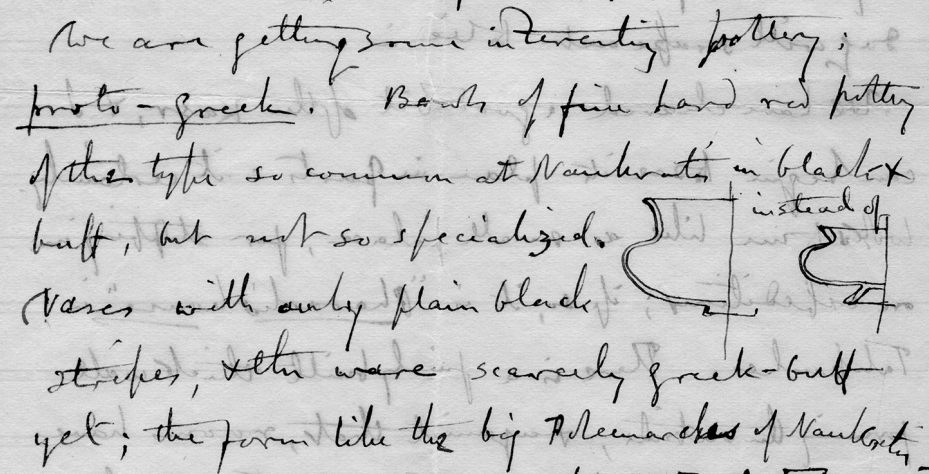 We are getting some interesting pottery;
proto-greek. Bowls of fine hard red pottery
of this type so common at Naukratis in black &
buff, but not so specialized. instead of
Vases with only plain black
stripes, & the ware scarcely greek-buff
yet; the form like the big Polemarchus of Naukratis